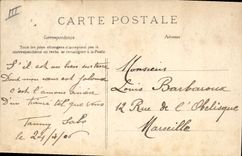 CARTE POSTALE
Correspondance
Adresse
Tous les pays étrangers n'acceptent pas
la correspondance au recto, se renseigner à la Poste
S'il est un bien
Dont nous sous jaloux
c'est l'amour
D'un tel que vous
Fanny
le 24/2/06
Monsieur
Louis Barbaroux
12 Rue de l'Obelisque
Marseille